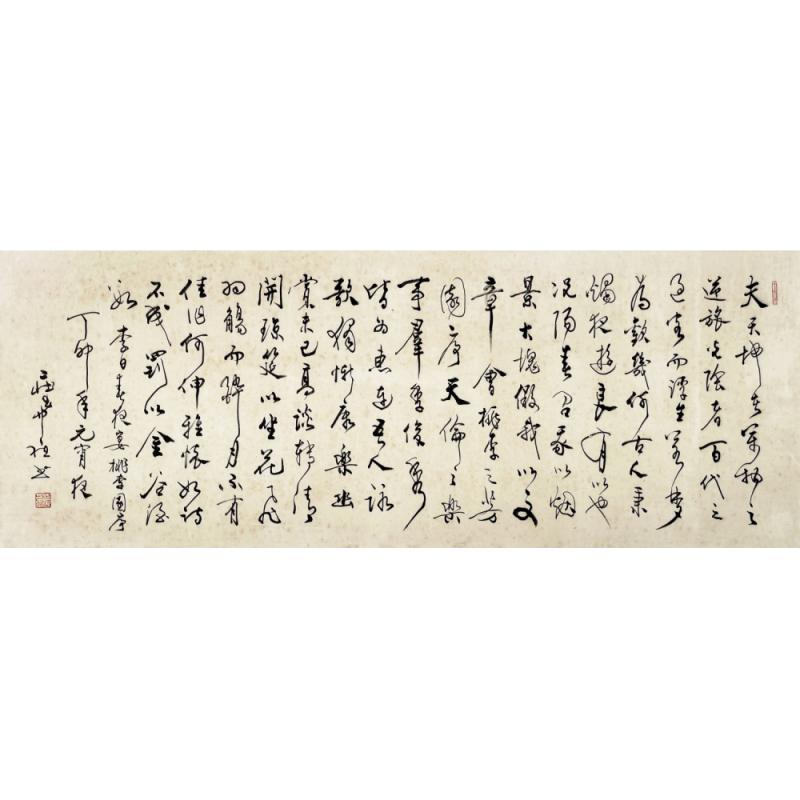 夫天地者萬物之
逆旅光陰者百代之
過客而浮生若夢
為歡幾何古人秉
燭夜遊良有以也
況陽春召我以烟
景大塊假我以文
章會桃李之芳
園序天倫之樂
事羣季俊秀
皆為惠連吾人詠
歌獨慚康樂幽
賞未已高談轉清
開瓊筵以坐花飛
羽觴而醉月不有
佳作何伸雅懷如詩
不成罰以金谷酒
數 李白春夜宴桃李園序
丁卯年元宵夜